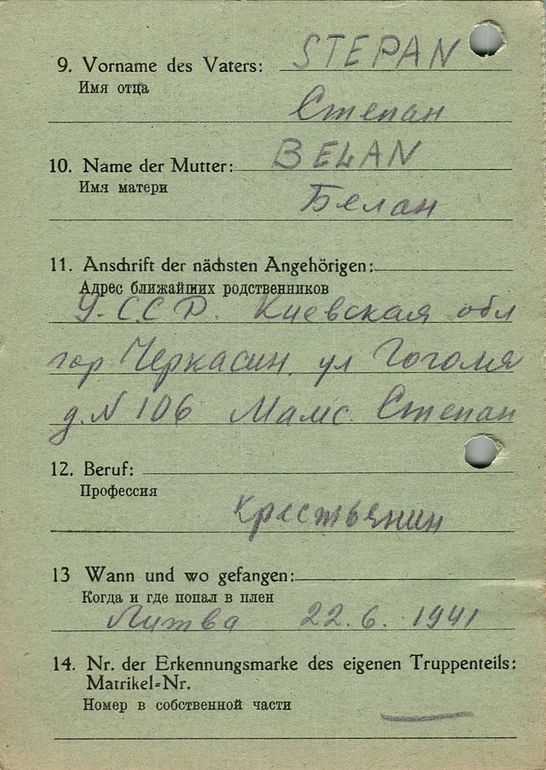 9. Vorname des Vaters: STEPAN
Имя отца
Степан
10. Name der Mutter: BELAN
Имя матери
Белан
11. Anschrift der nächsten Angehörigen:
Адрес ближайших родственников
У.С.С.Р. Киевская обл
гор Черкасин, ул Гоголя
д. N 106 Мамс. Степан
12. Beruf:
Профессия
Крестьянин
13 Wann und wo gefangen:
Когда и где попал в плен
Литва 22.6. 1941
14. Nr. der Erkennungsmarke des eigenen Truppenteils:
Matrikel-Nr.
Номер в собственной части